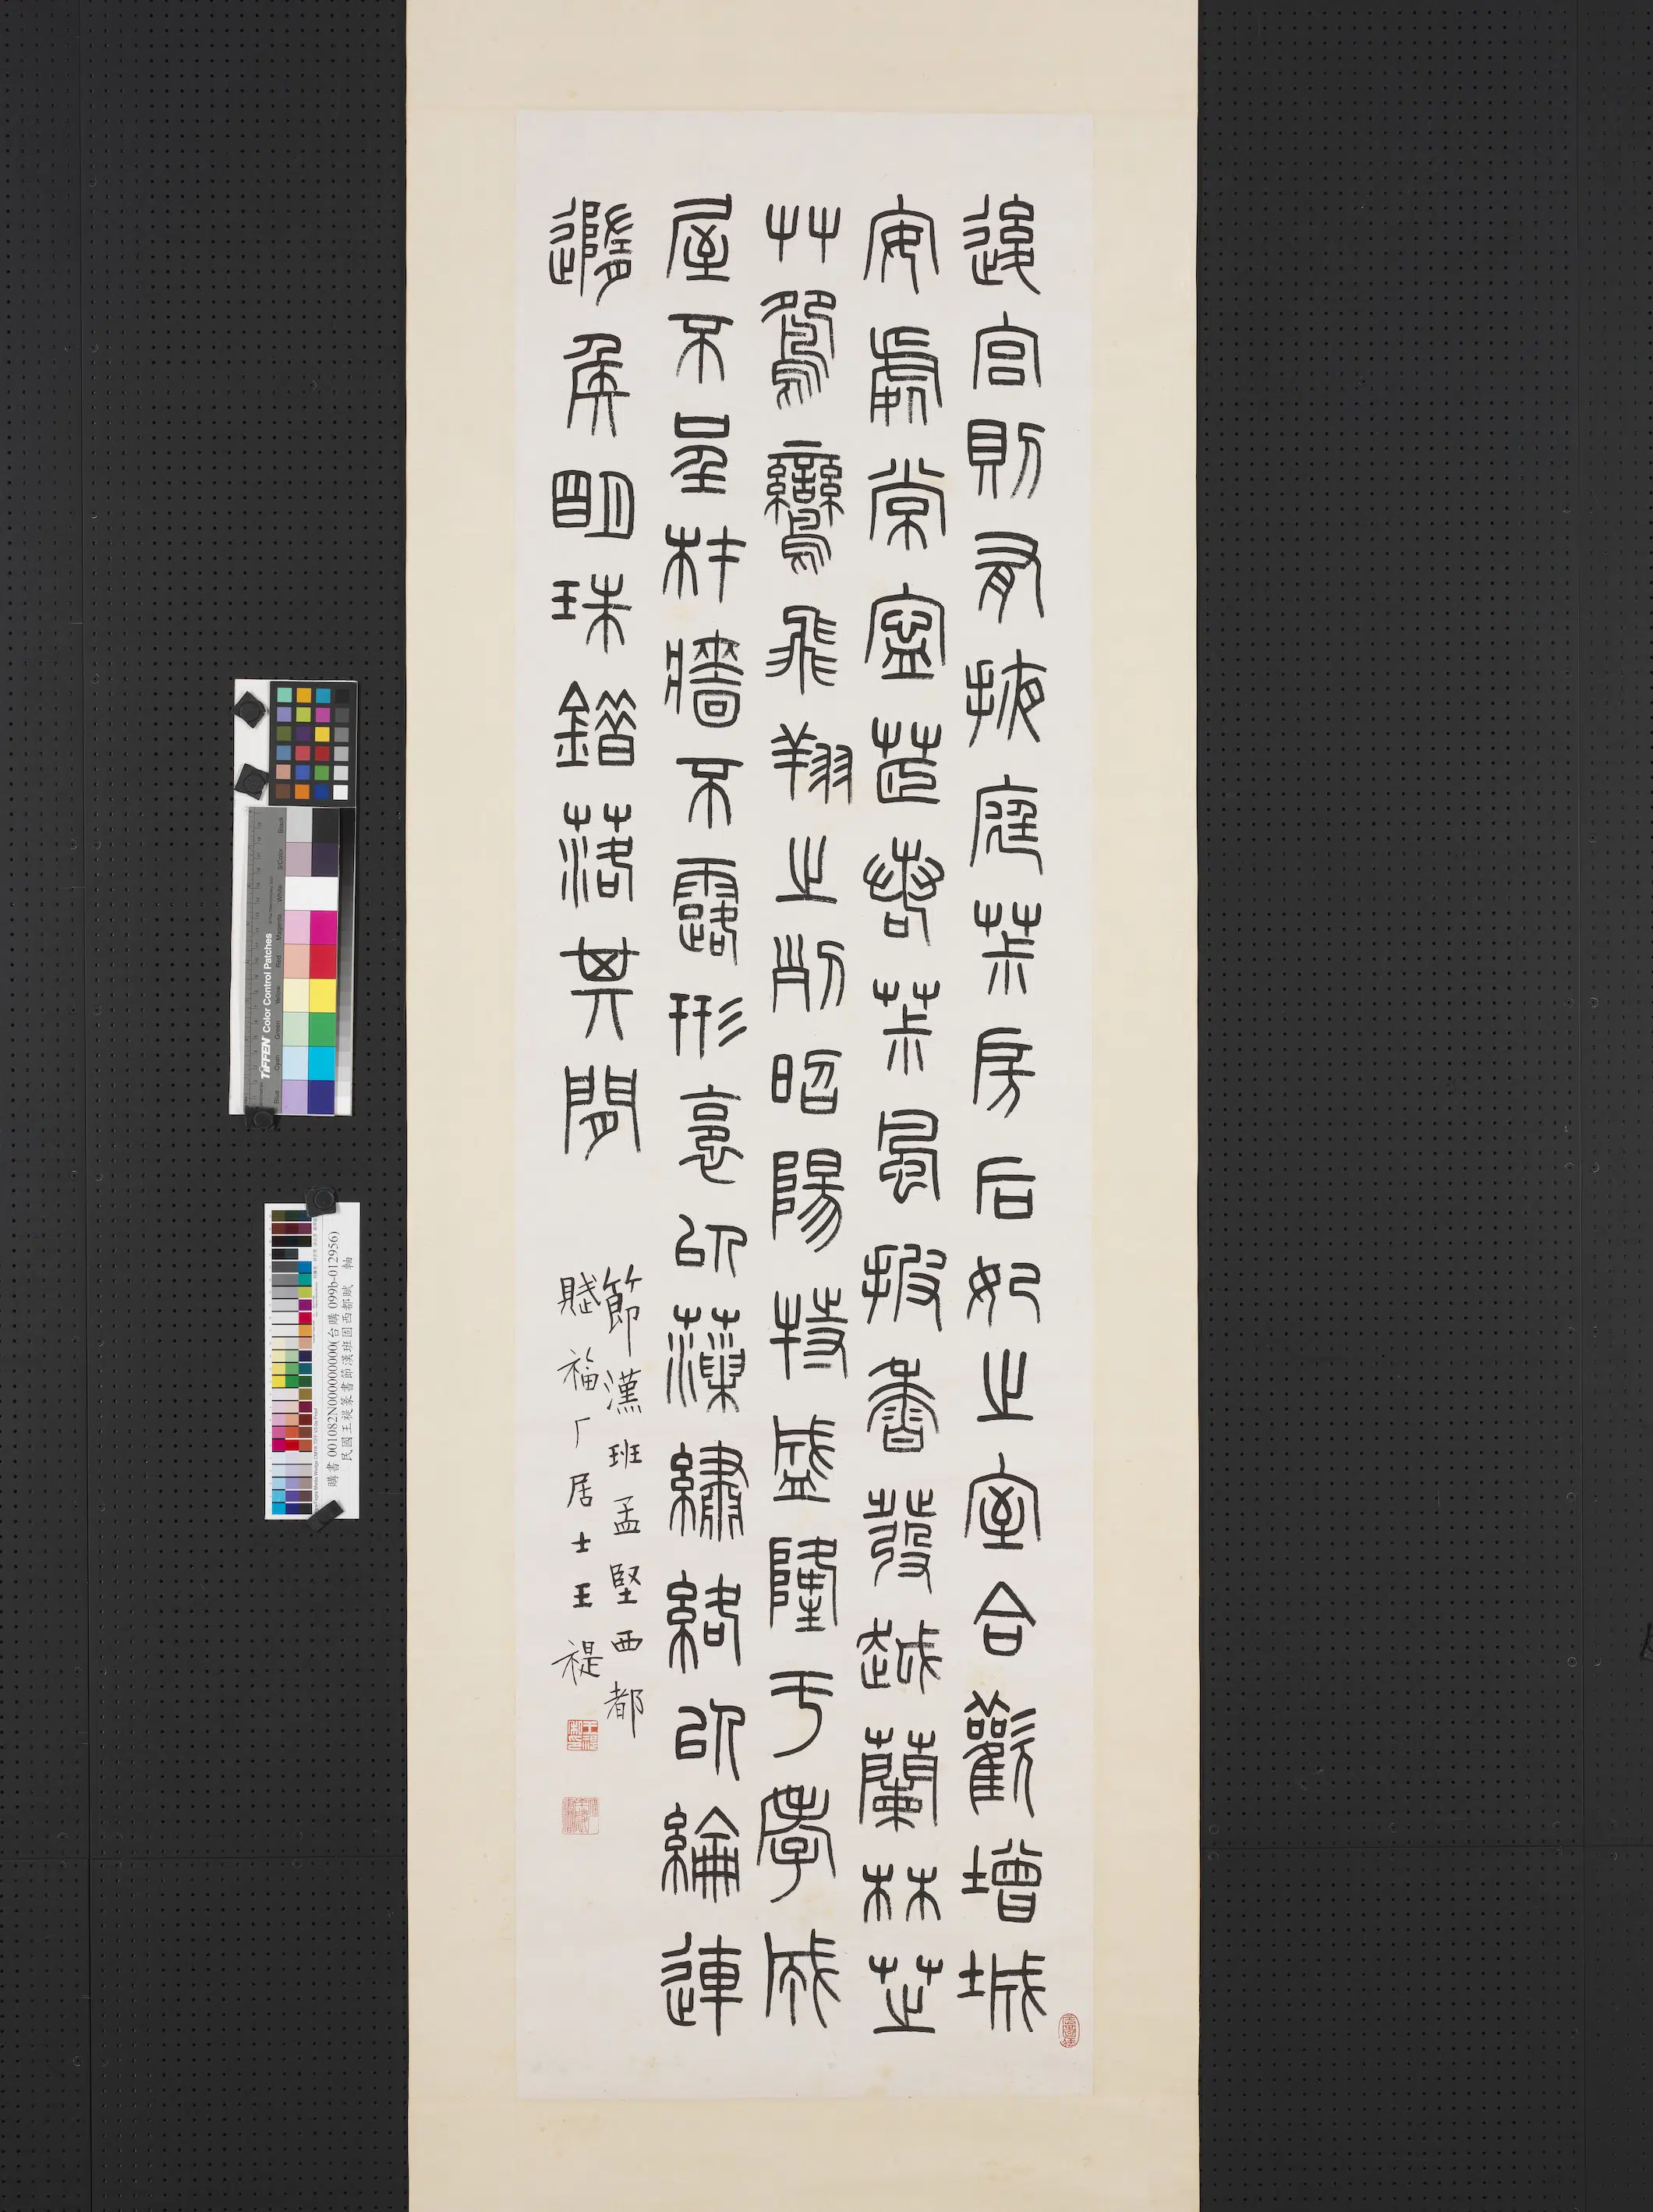 後宮則有掖庭茮房后妃之室合歡增城
安處常寧茞若茮風披香發越蘭林芷
艸鴛鸞飛翔之列昭陽特盛隆于孝成
屋不呈材牆不露形裛以藻繡絡以綸連
隨侯明珠錯落其間
節漢班孟堅西都
賦福厂居士王禔
TIFFEN Color Control Patches
Blue Cyan Green Yellow Red Magenta White 3/Color Black
購書 001082N000000000(台購 099b-012956)
民國王禔篆書節漢班固西都賦 軸